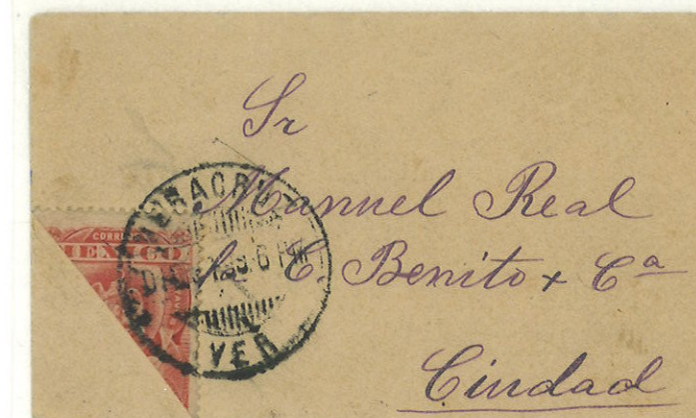 Sr
Manuel Real
C. Benito + Cª
Ciudad
CORRE
MEXICO
VERACRUZ
6 PM
VER